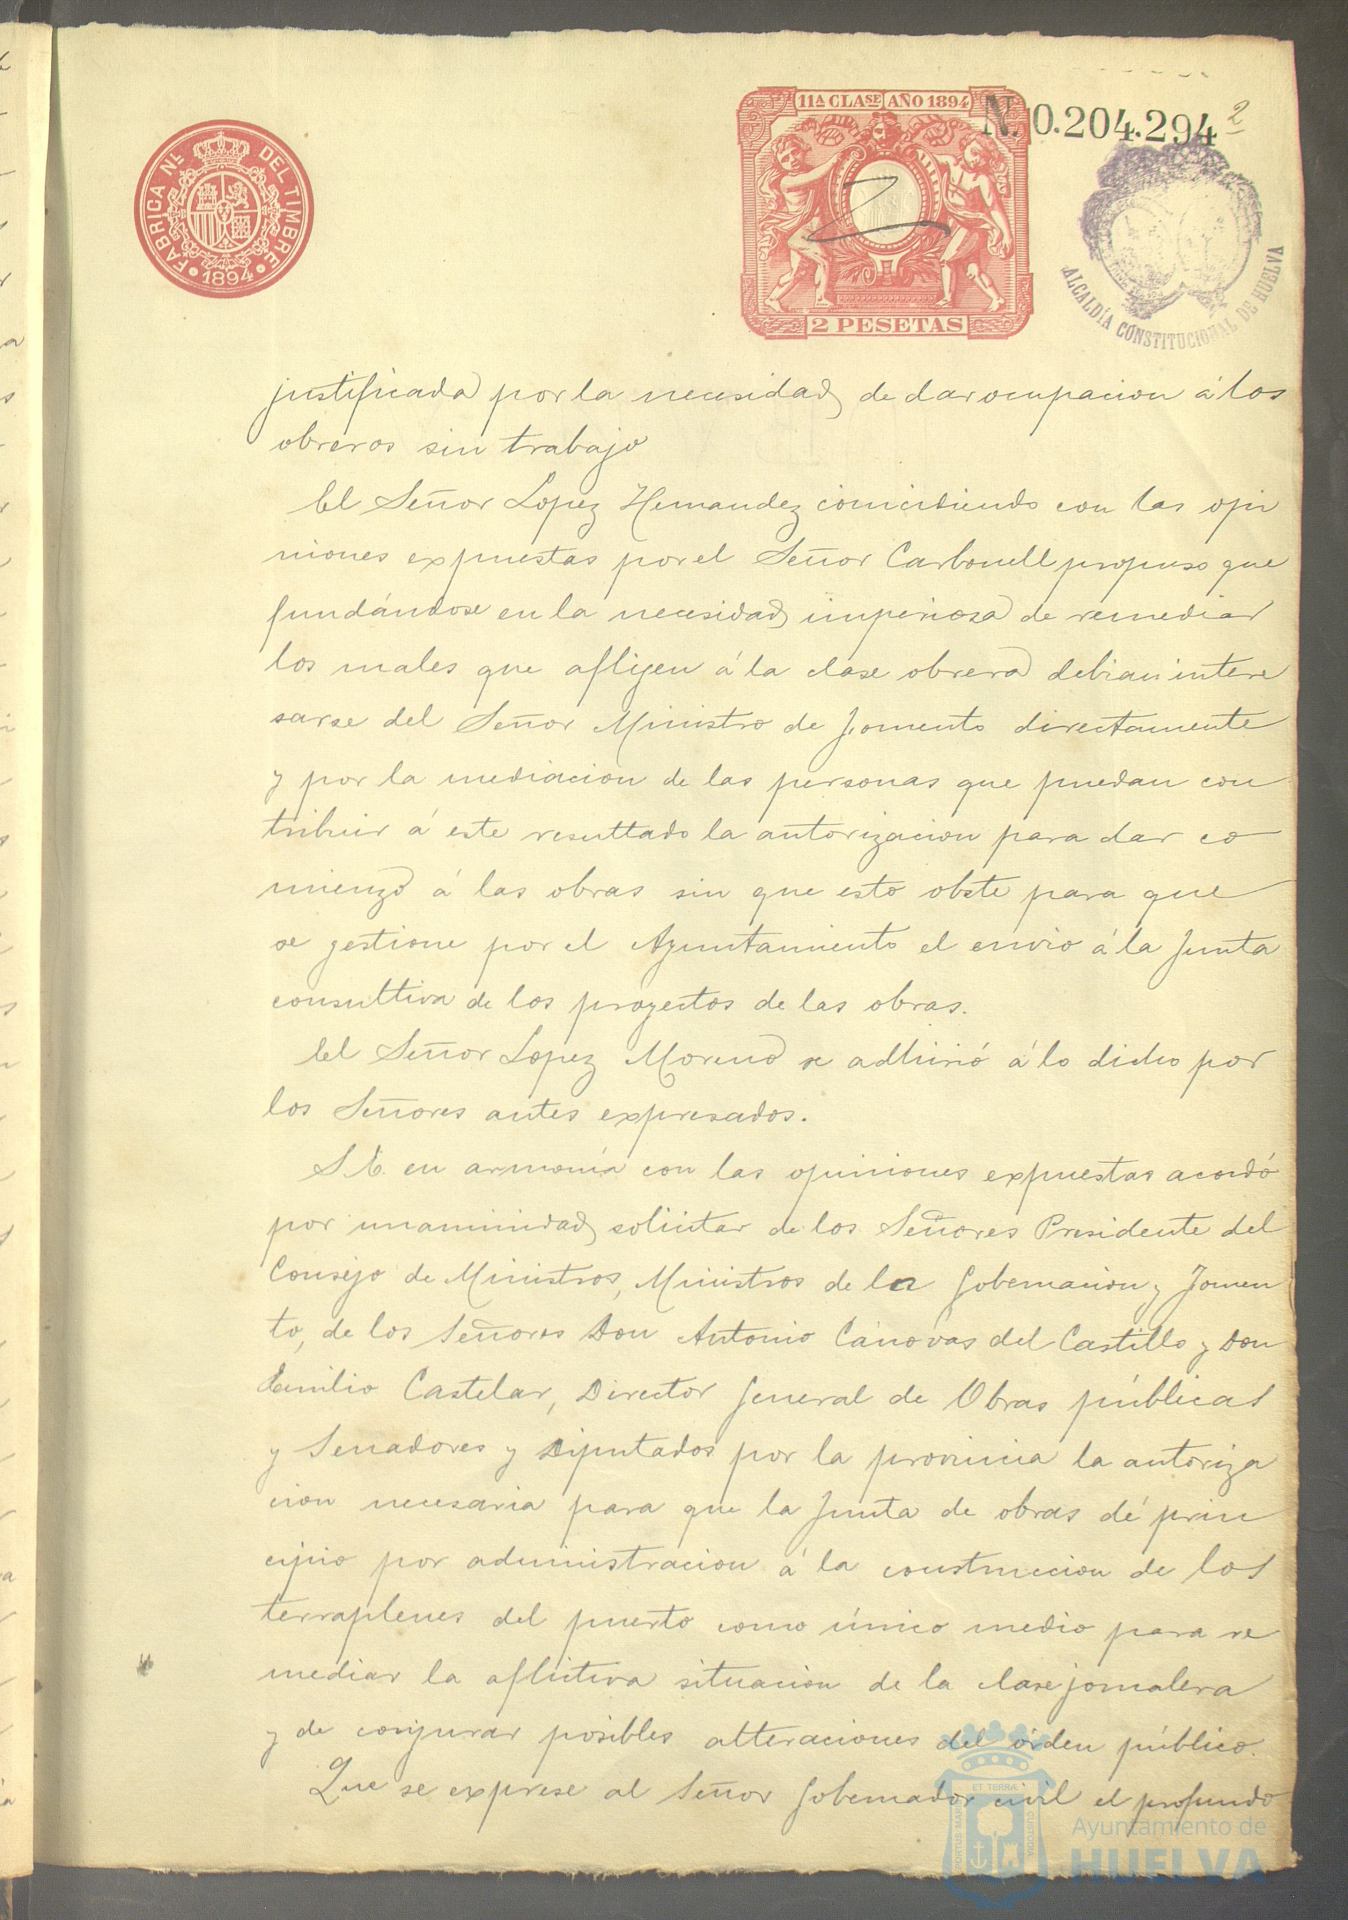 11ª CLASE AÑO 1894
N. 0.204.294
2
FABRICA NL. DEL TIMBRE
1894
2 PESETAS
ALCALDÍA CONSTITUCIONAL DE HUELVA
justificada por la necesidad de dar ocupacion á los
obreros sin trabajo
El Señor Lopez Hernandez coincidiendo con las opi
niones expuestas por el Señor Carbonell propuso que
fundándose en la necesidad imperiosa de remediar
los males que afligen á la clase obrera debian intere
sarse del Señor Ministro de Fomento directamente
y por la mediacion de las personas que puedan con
tribuir á este resultado la autorizacion para dar co
mienzo á las obras sin que esto obste para que
se gestione por el Ayuntamiento el envio á la Junta
consultiva de los proyectos de las obras.
El Señor Lopez Moreno se adhirió á lo dicho por
los Señores antes expresados.
S.E. en armonía con las opiniones expuestas acordó
por unanimidad solicitar de los Señores Presidente del
Consejo de Ministros, Ministros de la Gobernacion y Fomen
to, de los Señores Don Antonio Cánovas del Castillo y Don
Emilio Castelar, Director General de Obras públicas
y Senadores y Diputados por la provincia la autoriza
cion necesaria para que la Junta de obras dé prin
cipio por administracion á la construccion de los
terraplenes del puerto como único medio para re
mediar la aflictiva situacion de la clase jornalera
y de conjurar posibles alteraciones del órden público.
Que se exprese al Señor Gobernador civil el profundo
PORTUS MARIS ET TERRÆ CUSTODIA
Ayuntamiento de
HUELVA